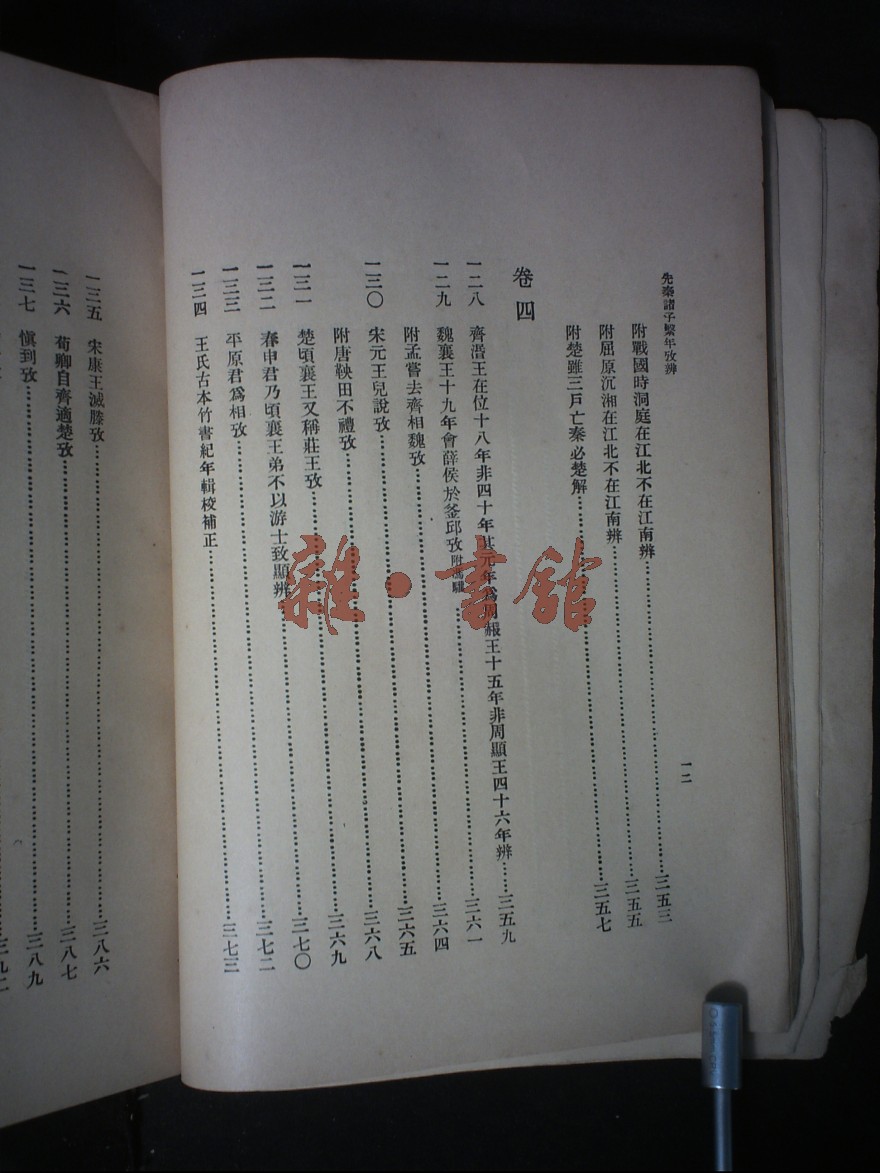 先秦諸子繫年攷辨
一二
附戰國時洞庭在江北不在江南辨……三五三
附屈原沉湘在江北不在江南辨……三五五
附楚雖三戶亡秦必楚解……三五七
卷四
一二八 齊湣王在位十八年非四十年其元年爲周赧王十五年非周顯王四十六年辨……三五九
一二九 魏襄王十九年會薛侯於釜邱攷附馮驩……三六一
附孟嘗去齊相魏攷……三六四
一三〇 宋元王兒說攷……三六五
附唐鞅田不禮攷……三六八
一三一 楚頃襄王又稱莊王攷……三六九
一三二 春申君乃頃襄王弟不以游士致顯辨……三七〇
一三三 平原君爲相攷……三七二
一三四 王氏古本竹書紀年輯校補正……三七三
一三五 宋康王滅滕攷……三八六
一三六 荀卿自齊適楚攷……三八七
一三七 愼到攷……三八九
雜·書館